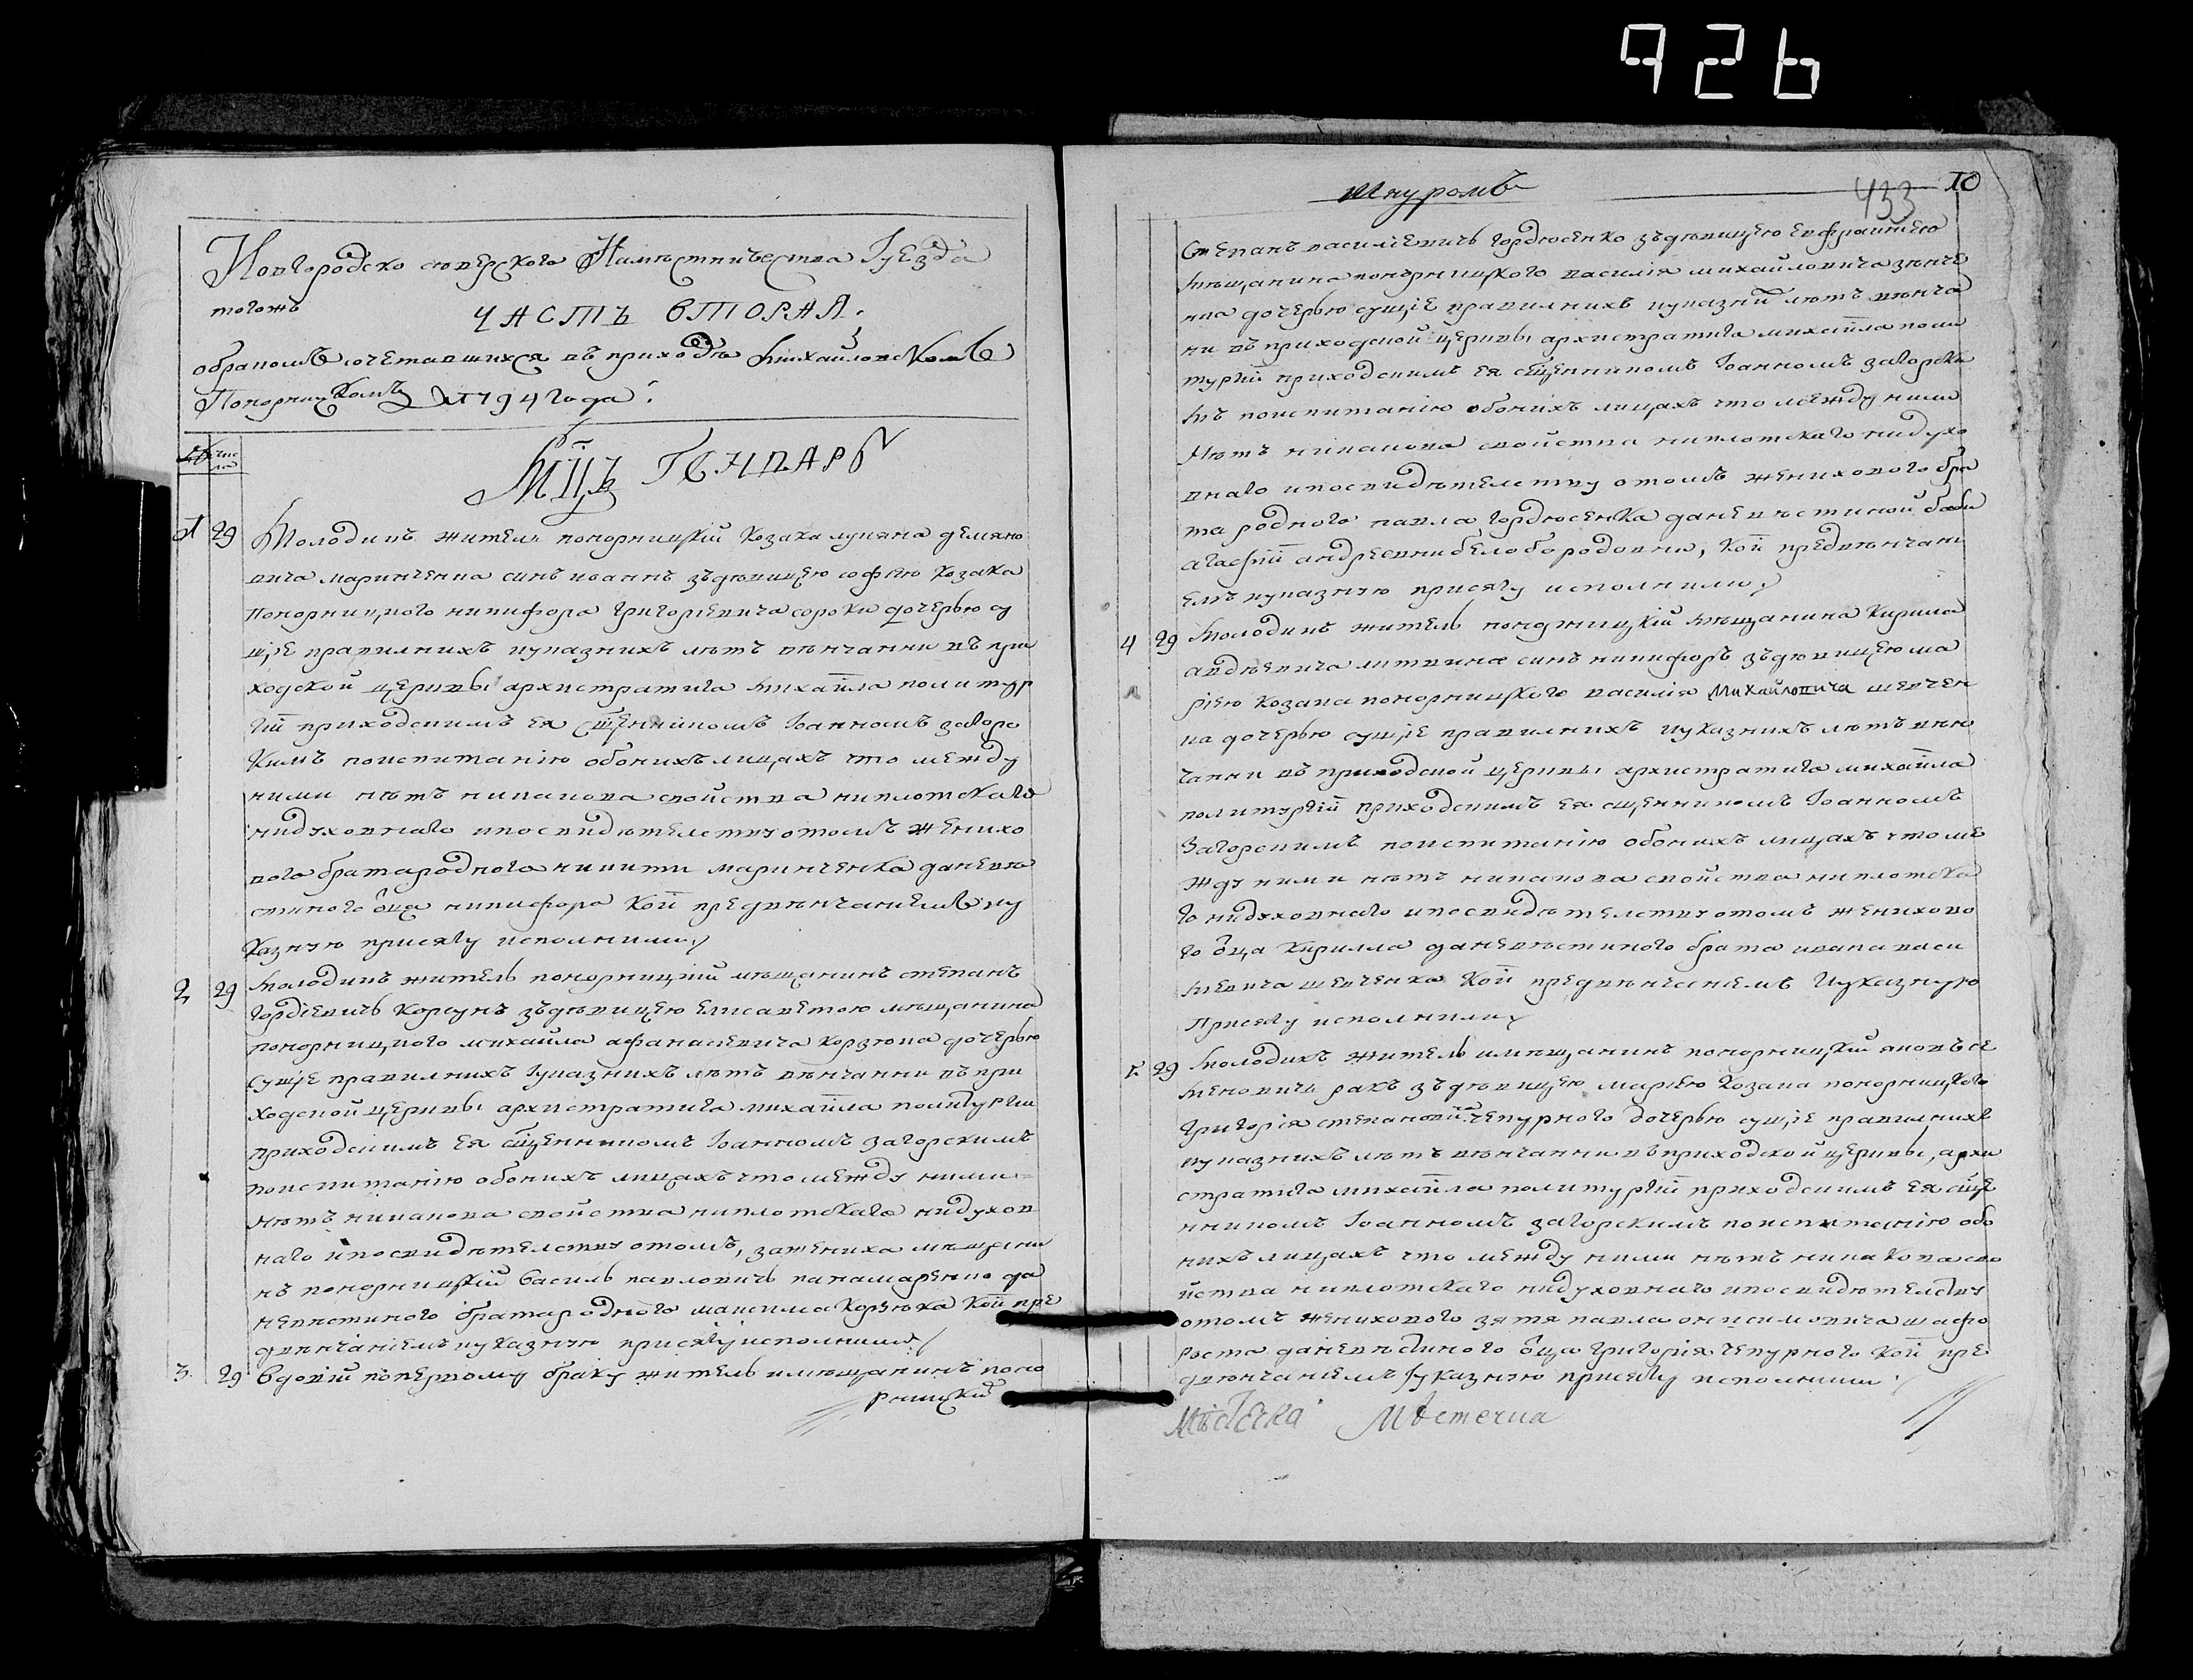 926
Новгородско сѣверского Намѣстничества Іуезда
тогожъ
ЧАСТЬ ВТОРАЯ.
обраномъ сочетавшихся въ приходѣ Михайловскомъ
Понорницкомъ 1794 года:
№ числа
Мцъ ГЕНВАРЬ
1 29 Молодикъ житель понорницкій козака лукяна демяно
вича маринченка синъ иоаннъ зъдѣвицею софіею козака
понорницкого никифора григоріевича сороки дочерью су
щіе правилнихъ иуказнихъ лѣтъ вѣнчанни въ при
ходской церкви архистратига михаила политур
гіи приходскимъ ея сщенникомъ Іоанномъ загорс
кимъ поиспитанію обоихъ лицахъ что между
ними нѣтъ никакова свойства ниплотскаго
нидуховнаго ипосвидѣтелству отомъ женихо
вого братародного никити маринченка даневѣ
стиного оца никифора кои предвѣнчаніемъ иу
казную присягу исполнили
2 29 молодикъ житель понорницкій мѣщанинъ степанъ
гордіевичъ корсунъ зъдѣвицею елисаветою мѣщанина
понорницкого михайла афанасіевича корзюка дочерью
сущіе правилнихъ Іуказнихъ лѣтъ вѣнчанни въ при
ходской церкви архистратига михаила политургіи
приходскимъ ея сщенникомъ Іоанномъ загорскимъ
поиспитанію обоихъ лицахъ что между ними
нѣтъ никакова свойства ниплотскаго нидухов
наго ипосвидѣтелству отомъ, зажениха мѣщани
нъ понорницкій василь павловичъ панамаренко да
невѣстиного братародного максима корзюка кои пре
двѣнчаніемъ иуказную присягу исполнили
3 29 Вдовій поперьвому браку житель имѣщанинъ поно
рницкій
Шнуромъ 433 10
Степанъ василіевичъ гордюсенко зъдѣвицею евфрапиніею
мѣщанина понорницкого василія михайловича
дочерью сущіе правилнихъ иуказни лѣтъ вѣнча
ни въ приходской церкви архистратига михаила поли
тургіи приходскимъ ея сщенникомъ Іоанномъ загорски
мъ поиспитанію обоихъ лицахъ что между ними
нѣтъ никакова свойства ниплотскаго нидухо
внаго ипосвидѣтелству отомъ женихового бра
та родного павла гордюсенка даневѣстиной баби
агафіи андреевни белобородовни, кои предвѣнчані
емъ иуказную присягу исполнили
4 29 молодикъ житель понорницкій мѣщанина кирила
авдѣевича литвина синъ никифоръ зъдѣвицею ма
ріею козака понорницкого василія Михайловича шевчен
ка дочерью сущіе правилнихъ иуказнихъ лѣтъ вѣн
чанни въ приходской церкви архистратига михаила
политургіи приходскимъ ея сщенникомъ Іоанномъ
Загорскимъ поиспитанію обоихъ лицахъ что ме
жду ними нѣтъ никакова свойства ниплотска
го нидуховнаго ипосвидѣтелству отомъ женихово
го оца кирилла даневѣстиного брата ивана васи
лиевича шевченка кои предвѣнчаніемъ Иуказную
Присягу исполнили
5. 29 молодикъ житель имѣщанинъ понорницкій яковъ се
меновичъ ракъ зъдѣвицею маріею козака понорницкого
григорія степановича чепурного дочерью сущіе правилнихъ
иуказнихъ лѣтъ вѣнчанни въ приходской церкви, архи
стратига михаила политургіи приходскимъ ея сще
нникомъ Іоанномъ загорскимъ поиспитанію обо
ихъ лицахъ что между ними нѣтъ никакова сво
йства ниплотскаго нидуховнаго ипосвидѣтелству
отомъ женихового зятя павла онисимовича шафо
роста даневѣстиного оца григорія чепурного кои пре
двѣнчаніемъ Іуказную присягу исполнили.